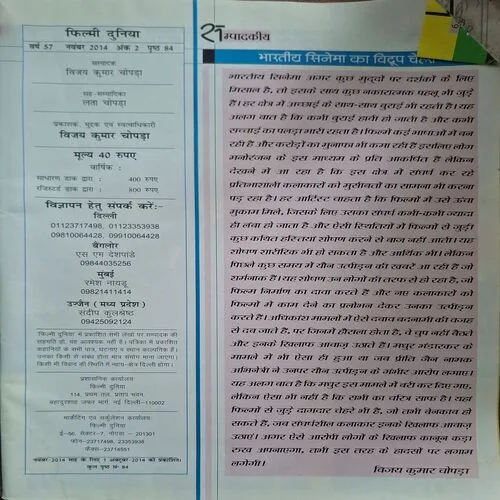 फिल्मी दुनिया
वर्ष 57 नवंबर 2014 अंक 2 पृष्ठ 84
सम्पादक
विजय कुमार चोपड़ा
सह-सम्पादिका
लता चोपड़ा
प्रकाशक, मुद्रक एवं स्वत्वाधिकारी
विजय कुमार चोपड़ा
मूल्य 40 रुपए
वार्षिक :
साधारण डाक द्वारा : 400 रुपए
रजिस्टर्ड डाक द्वारा : 800 रुपए
विज्ञापन हेतु संपर्क करें:-
दिल्ली
01123717498, 01123353938
09810064428, 09910064428
बैंगलोर
एस एम देशपांडे
09844035256
मुंबई
रमेश नायडू
09821411414
उज्जैन (मध्य प्रदेश)
संदीप कुलश्रेष्ठ
09425092124
'फिल्मी दुनिया' में प्रकाशित सभी लेखों पर सम्पादक की
सहमति हो, यह आवश्यक नहीं है। पत्रिका में प्रकाशित
कहानियों के सभी पात्र, घटनाएं व स्थान काल्पनिक हैं।
उनका किसी से संबंध होना मात्र संयोग माना जाएगा।
किसी भी विवाद की स्थिति में न्याय-क्षेत्र दिल्ली होगा।
प्रशासनिक कार्यालय
फिल्मी दुनिया
114, प्रथम तल, प्रताप भवन
बहादुरशाह जफर मार्ग, नई दिल्ली-110002
मार्केटिंग एवं सर्कुलेशन कार्यालय:
फिल्मी दुनिया
ई-56, सेक्टर-7, नोएडा - 201301
फोन-23717498, 23353938
फैक्स-23714551
नवंबर-2014 माह के लिए 1 अक्टूबर-2014 को प्रकाशित।
कुल पृष्ठ सं- 84
सम्पादकीय
भारतीय सिनेमा का विद्रूप
भारतीय सिनेमा अगर कुछ मुद्दों पर दर्शकों के लिए
मिसाल है, तो इसके साथ कुछ नकारात्मक पहलू भी जुड़े
हैं। हर क्षेत्र में अच्छाई के साथ-साथ बुराई भी रहती है। यह
अलग बात है कि कभी बुराई हावी हो जाती है और कभी
सच्चाई का पलड़ा भारी रहता है। फिल्में कई भाषाओं में बन
रही हैं और करोड़ों का मुनाफा भी कमा रही हैं इसलिए लोग
मनोरंजन के इस माध्यम के प्रति आकर्षित हैं लेकिन
देखने में आ रहा है कि इस क्षेत्र में संघर्ष कर रहे
प्रतिभाशाली कलाकारों को मुसीबतों का सामना भी करना
पड़ रहा है। हर आर्टिस्ट चाहता है कि फिल्मों में उसे ऊंचा
मुकाम मिले, जिसके लिए उसका संघर्ष कभी-कभी ज्यादा
ही लंबा हो जाता है और ऐसी स्थितियों में फिल्मों से जुड़ी
कुछ कथित हस्तियां शोषण करने से बाज नहीं आतीं। यह
शोषण शारीरिक भी हो सकता है और आर्थिक भी। लेकिन
पिछले कुछ समय में यौन उत्पीड़न की खबरें आ रही हैं जो
शर्मनाक हैं। यह शोषण उन लोगों की तरफ से हो रहा है, जो
फिल्म निर्माण का दावा करते हैं और नए कलाकारों को
फिल्मों में काम देने का प्रलोभन देकर उनका उत्पीड़न
करते हैं। अधिकांश मामलों में ऐसे दबाव बदनामी की वजह
से दब जाते हैं, पर जिनमें हौसला होता है, वे चुप नहीं बैठते
और इनके खिलाफ आवाज़ उठाते हैं। मधुर भंडारकर के
मामले में भी ऐसा ही हुआ था जब प्रीति जैन नामक
अभिनेत्री ने उनपर यौन उत्पीड़न के गंभीर आरोप लगाए।
यह अलग बात है कि मधुर इस मामले में बरी कर दिए गए,
लेकिन ऐसा भी नहीं है कि सभी का चरित्र साफ है। यहां
फिल्मों से जुड़े दागदार चेहरे भी हैं, जो तभी बेनकाब हो
सकते हैं, जब संघर्षशील कलाकार इनके खिलाफ आवाज़
उठाएं। अगर ऐसे आरोपी लोगों के खिलाफ कानून कड़ा
रुख अपनाएगा, तभी इस तरह के हादसों पर लगाम
लगेगी।
विजय कुमार चोपड़ा